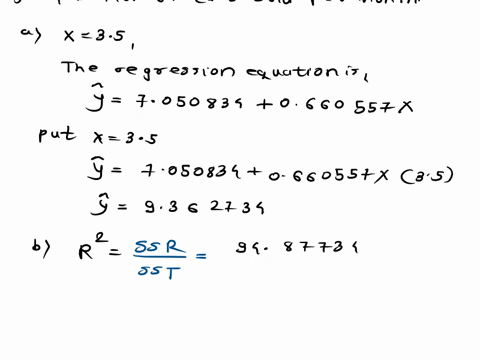 a) x = 3.5,
The regression equation is,
ŷ = 7.050834 + 0.660557x
put x = 3.5
ŷ = 7.050834 + 0.660557x (3.5)
ŷ = 9.362734
b) R² = SSR/SST = 94.87734